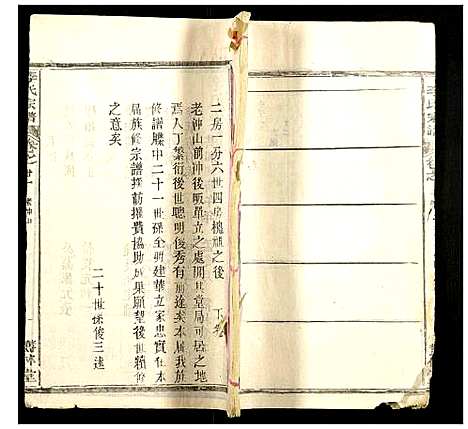 李氏宗譜
二房一分六世四房槐旭之後
老沖山前沖後畈單立之處開其堂局可居之地
焉人丁繁衍後世聰明俊秀有前逢矣本屆我旌
修譜牒中二十一世孫全明建華立家忠實在本
屆族修宗譜採訪撰費協助成果願望後世賴賢
之意矣
二十世孫俊三述
李氏宗譜